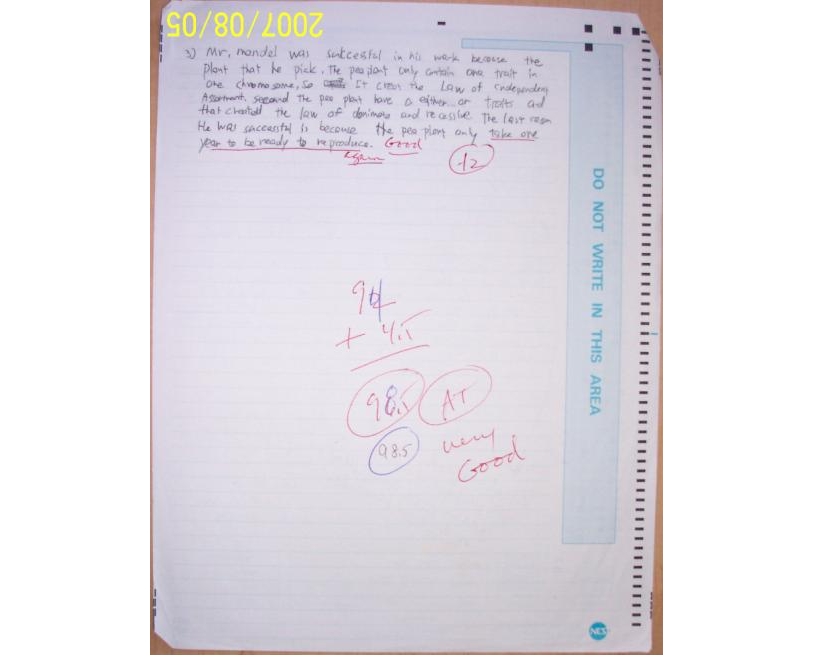 2007/08/05
3) Mr. mandel was successful in his work because the
plant that he pick. The pea plant only contain one trait in
one chromosome, so It creat the Law of independent
Assortment. second The pea plant have a either..or traits and
that the law of dominate and recessive. The last
He was successful is because the pea plant only take one
year to be ready to reproduce. Good
again
+2
94
+ 4.5
98.5 A+
98.5 very
Good
DO NOT WRITE IN THIS AREA
NCS